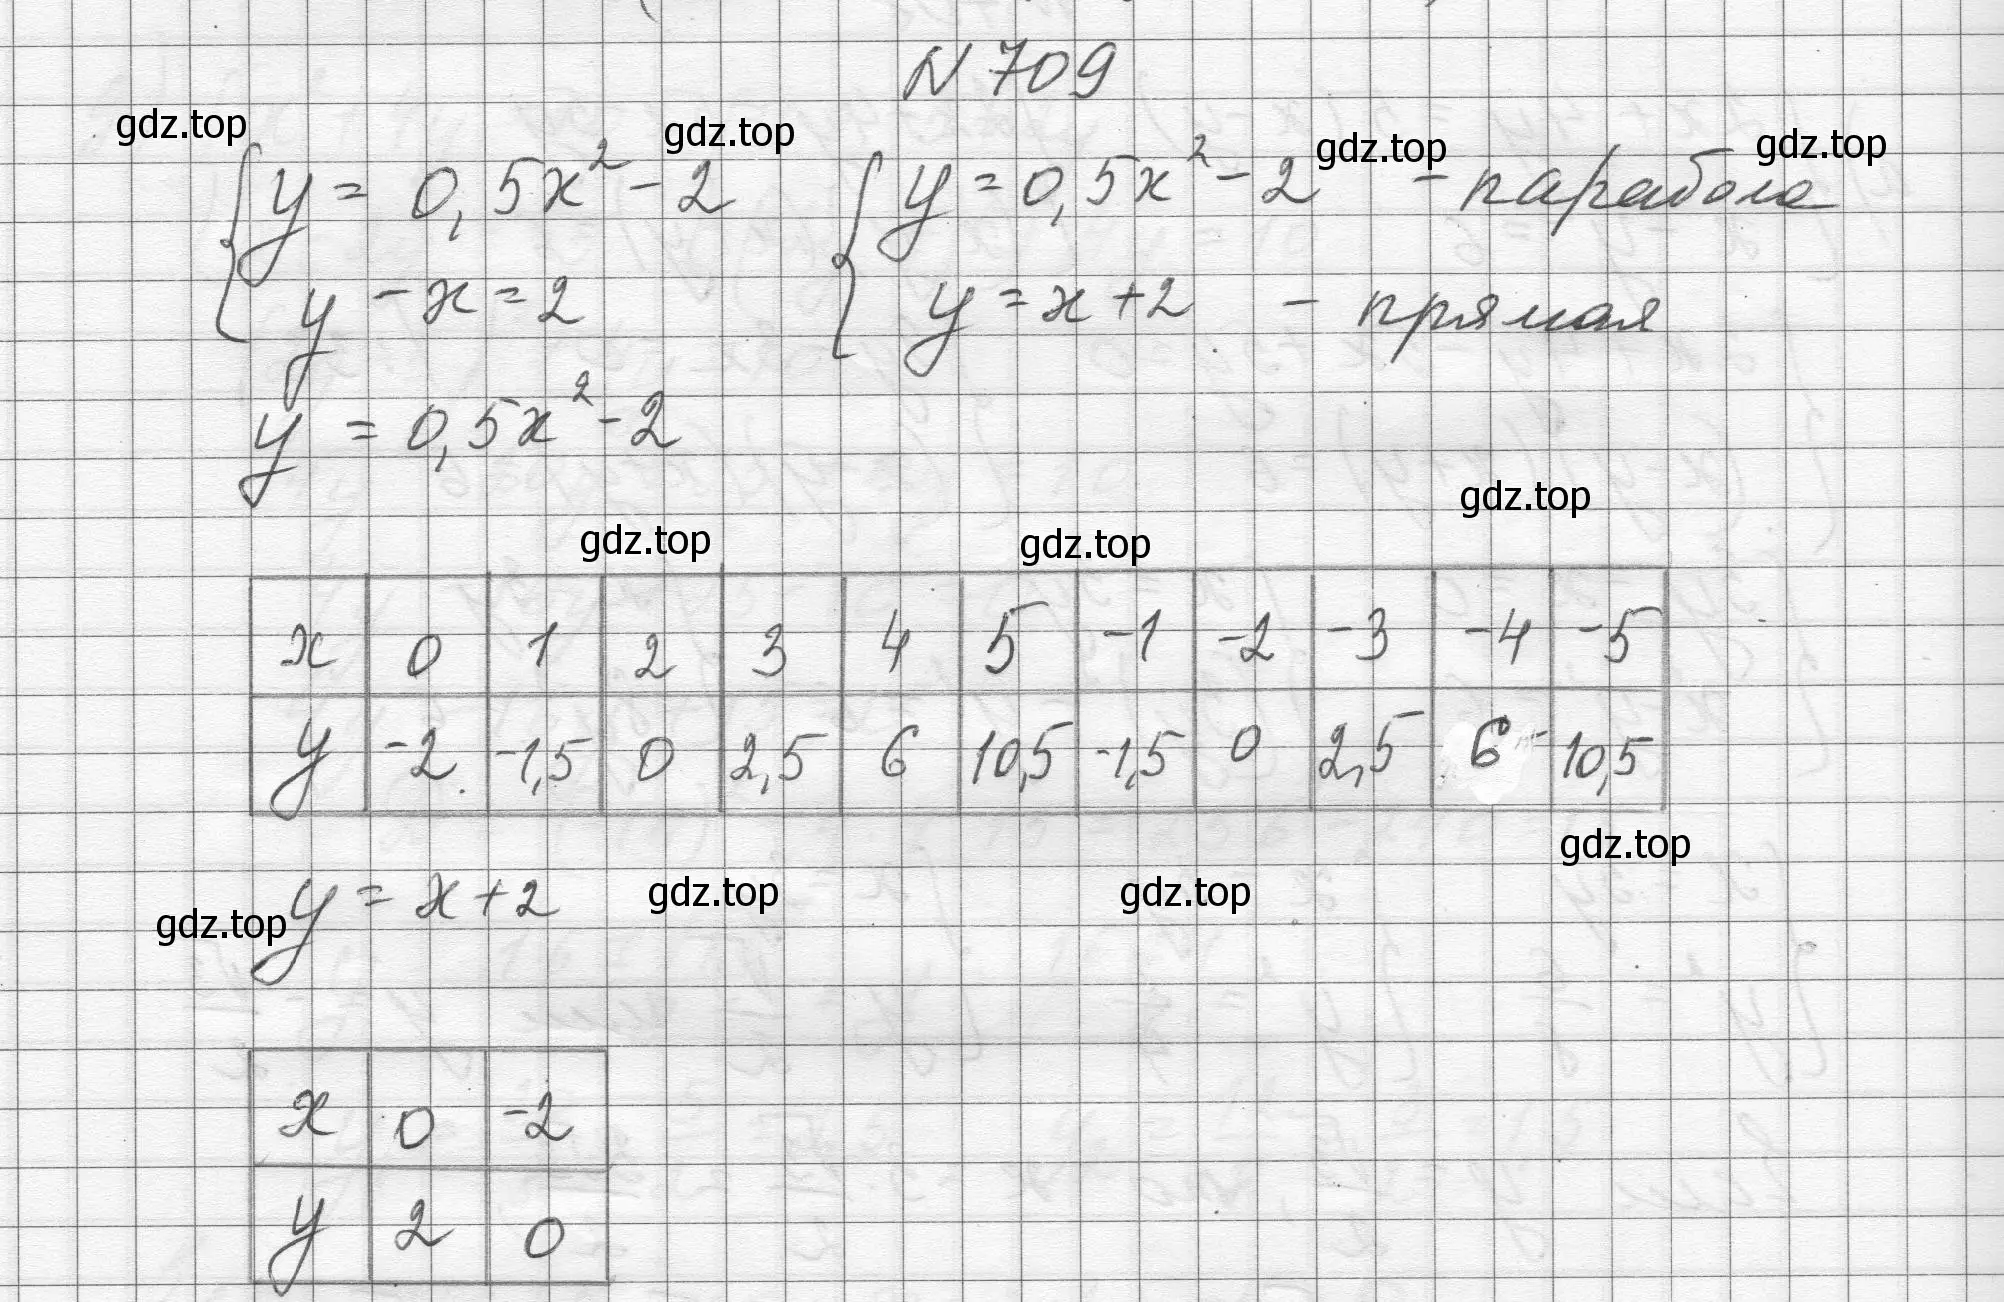 N 709
gdz.top gdz.top gdz.top gdz.top
{ y = 0,5x² - 2 { y = 0,5x² - 2 - парабола
y - x = 2 y = x + 2 - прямая
y = 0,5x² - 2
gdz.top
gdz.top gdz.top
x 0 1 2 3 4 5 -1 -2 -3 -4 -5
y -2 -1,5 0 2,5 6 10,5 -1,5 0 2,5 6 10,5
gdz.top
y = x + 2 gdz.top gdz.top
gdz.top
x 0 -2
y 2 0